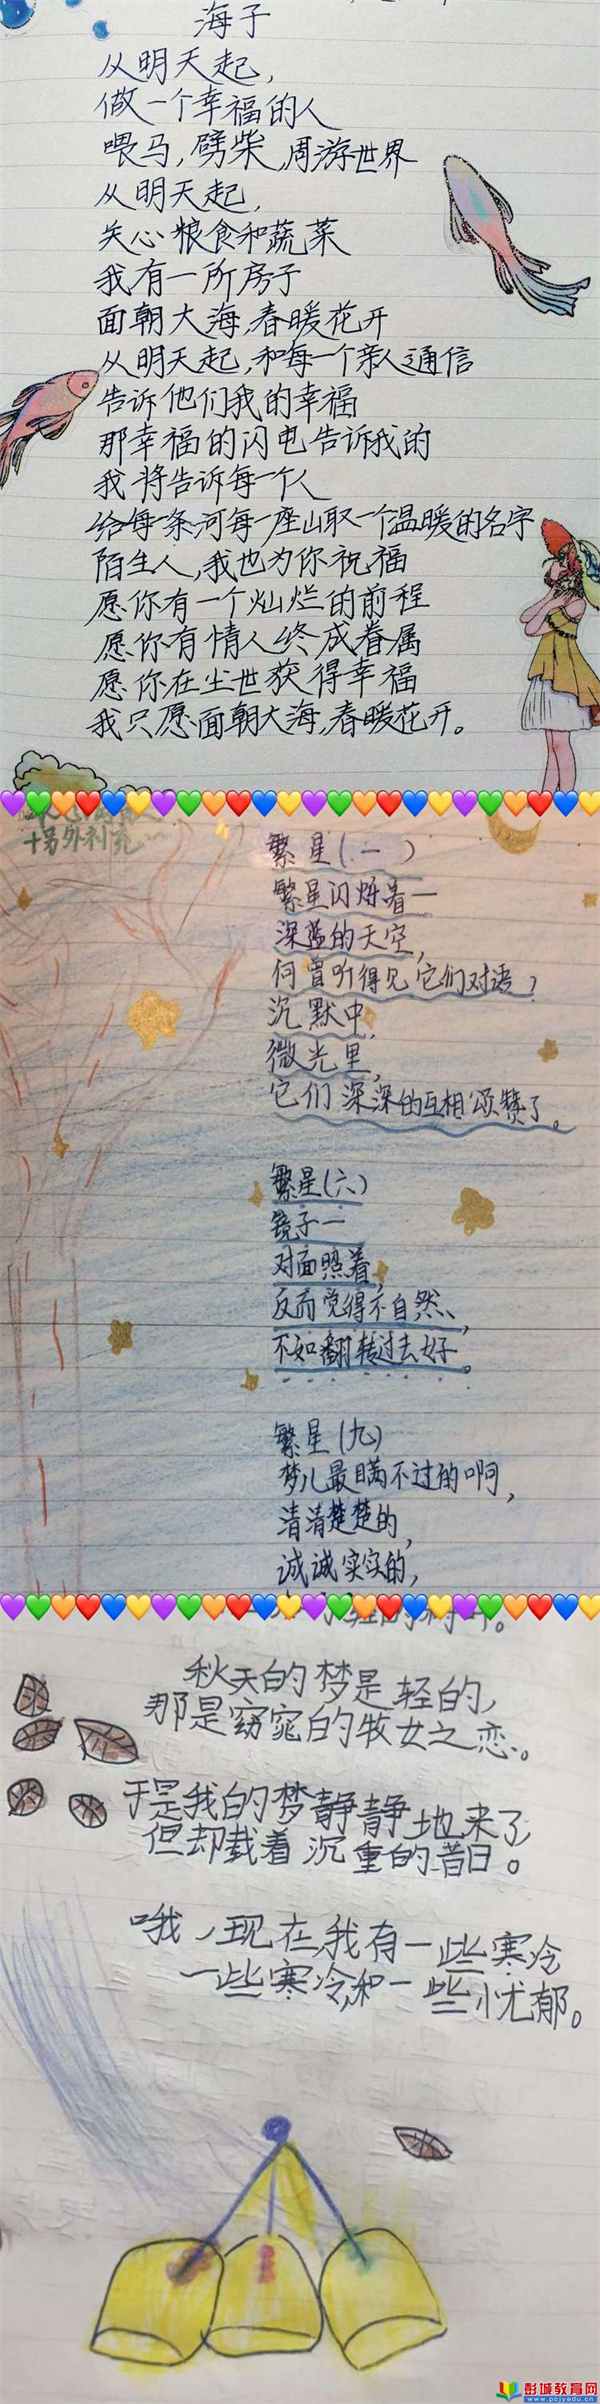 海子
从明天起,
做一个幸福的人
喂马,劈柴,周游世界
从明天起,
关心粮食和蔬菜
我有一所房子
面朝大海,春暖花开
从明天起,和每一个亲人通信
告诉他们我的幸福
那幸福的闪电告诉我的
我将告诉每一个人
给每一条河每一座山取一个温暖的名字
陌生人,我也为你祝福
愿你有一个灿烂的前程
愿你有情人终成眷属
愿你在尘世获得幸福
我只愿面朝大海,春暖花开。
十另外补充
繁星(一)
繁星闪烁着一
深蓝的天空,
何曾听得见它们对语?
沉默中,
微光里,
它们深深的互相颂赞了。
繁星(六)
镜子一
对面照着,
反而觉得不自然,
不如翻转过去好。
繁星(九)
梦儿最瞒不过的啊,
清清楚楚的,
诚诚实实的,
秋天的梦是轻的,
那是窈窕的牧女之恋。
于是我的梦静静地来了,
但却载着沉重的昔日。
哦,现在,我有一些寒冷
一些寒冷,和一些忧郁。
彭城教育网
www.pcjyedu.cn